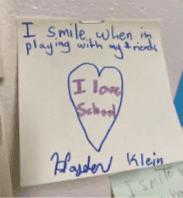 I smile when im
playing with my friends
I love
School
Hayden Klein
I smile